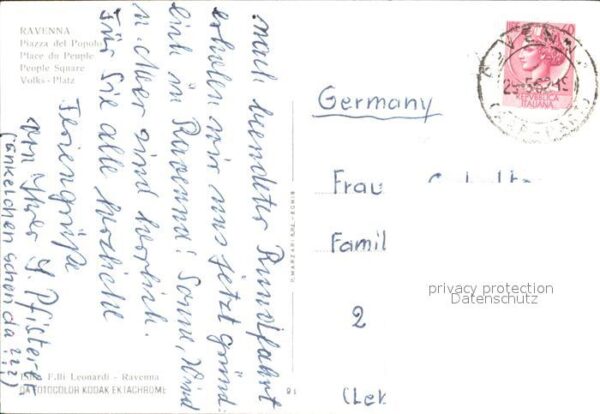 RAVENNA
Piazza del Popolo
Place du Peuple
People Square
Volks-Platz
nach beendeter Rundfahrt
erholen wir uns jetzt gründ-
lich in Ravenna! Sonne, Wind
u. Meer sind herrlich.
Für Sie alle herzliche
Feriengrüße
von Ihrer J. Pfister
(Enkelchen schon da???)
F.lli Leonardi - Ravenna
DA FOTOCOLOR KODAK EKTACHROME
REPUBBLICA
ITALIANA
Germany
Frau
Famil
2
privacy protection
Datenschutz